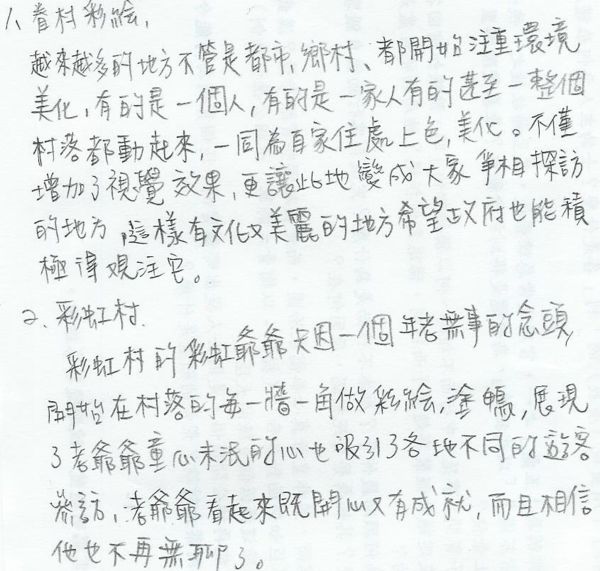 1、眷村彩繪,
越來越多的地方不管是都市,鄉村、都開始注重環境
美化,有的是一個人,有的是一家人有的甚至一整個
村落都動起來,一同為自家住處上色,美化。不僅
增加了視覺效果,更讓此地變成大家爭相探訪
的地方,這樣有文化又美麗的地方希望政府也能積
極得觀注它。
2、彩虹村.
彩虹村的彩虹爺爺只因一個年老無事的念頭,
開始在村落的每一牆一角做彩繪,塗鴨,展現
了老爺爺童心未泯的心也吸引了各地不同的遊客
參訪,老爺爺看起來既開心又有成就,而且相信
他也不再無聊了。